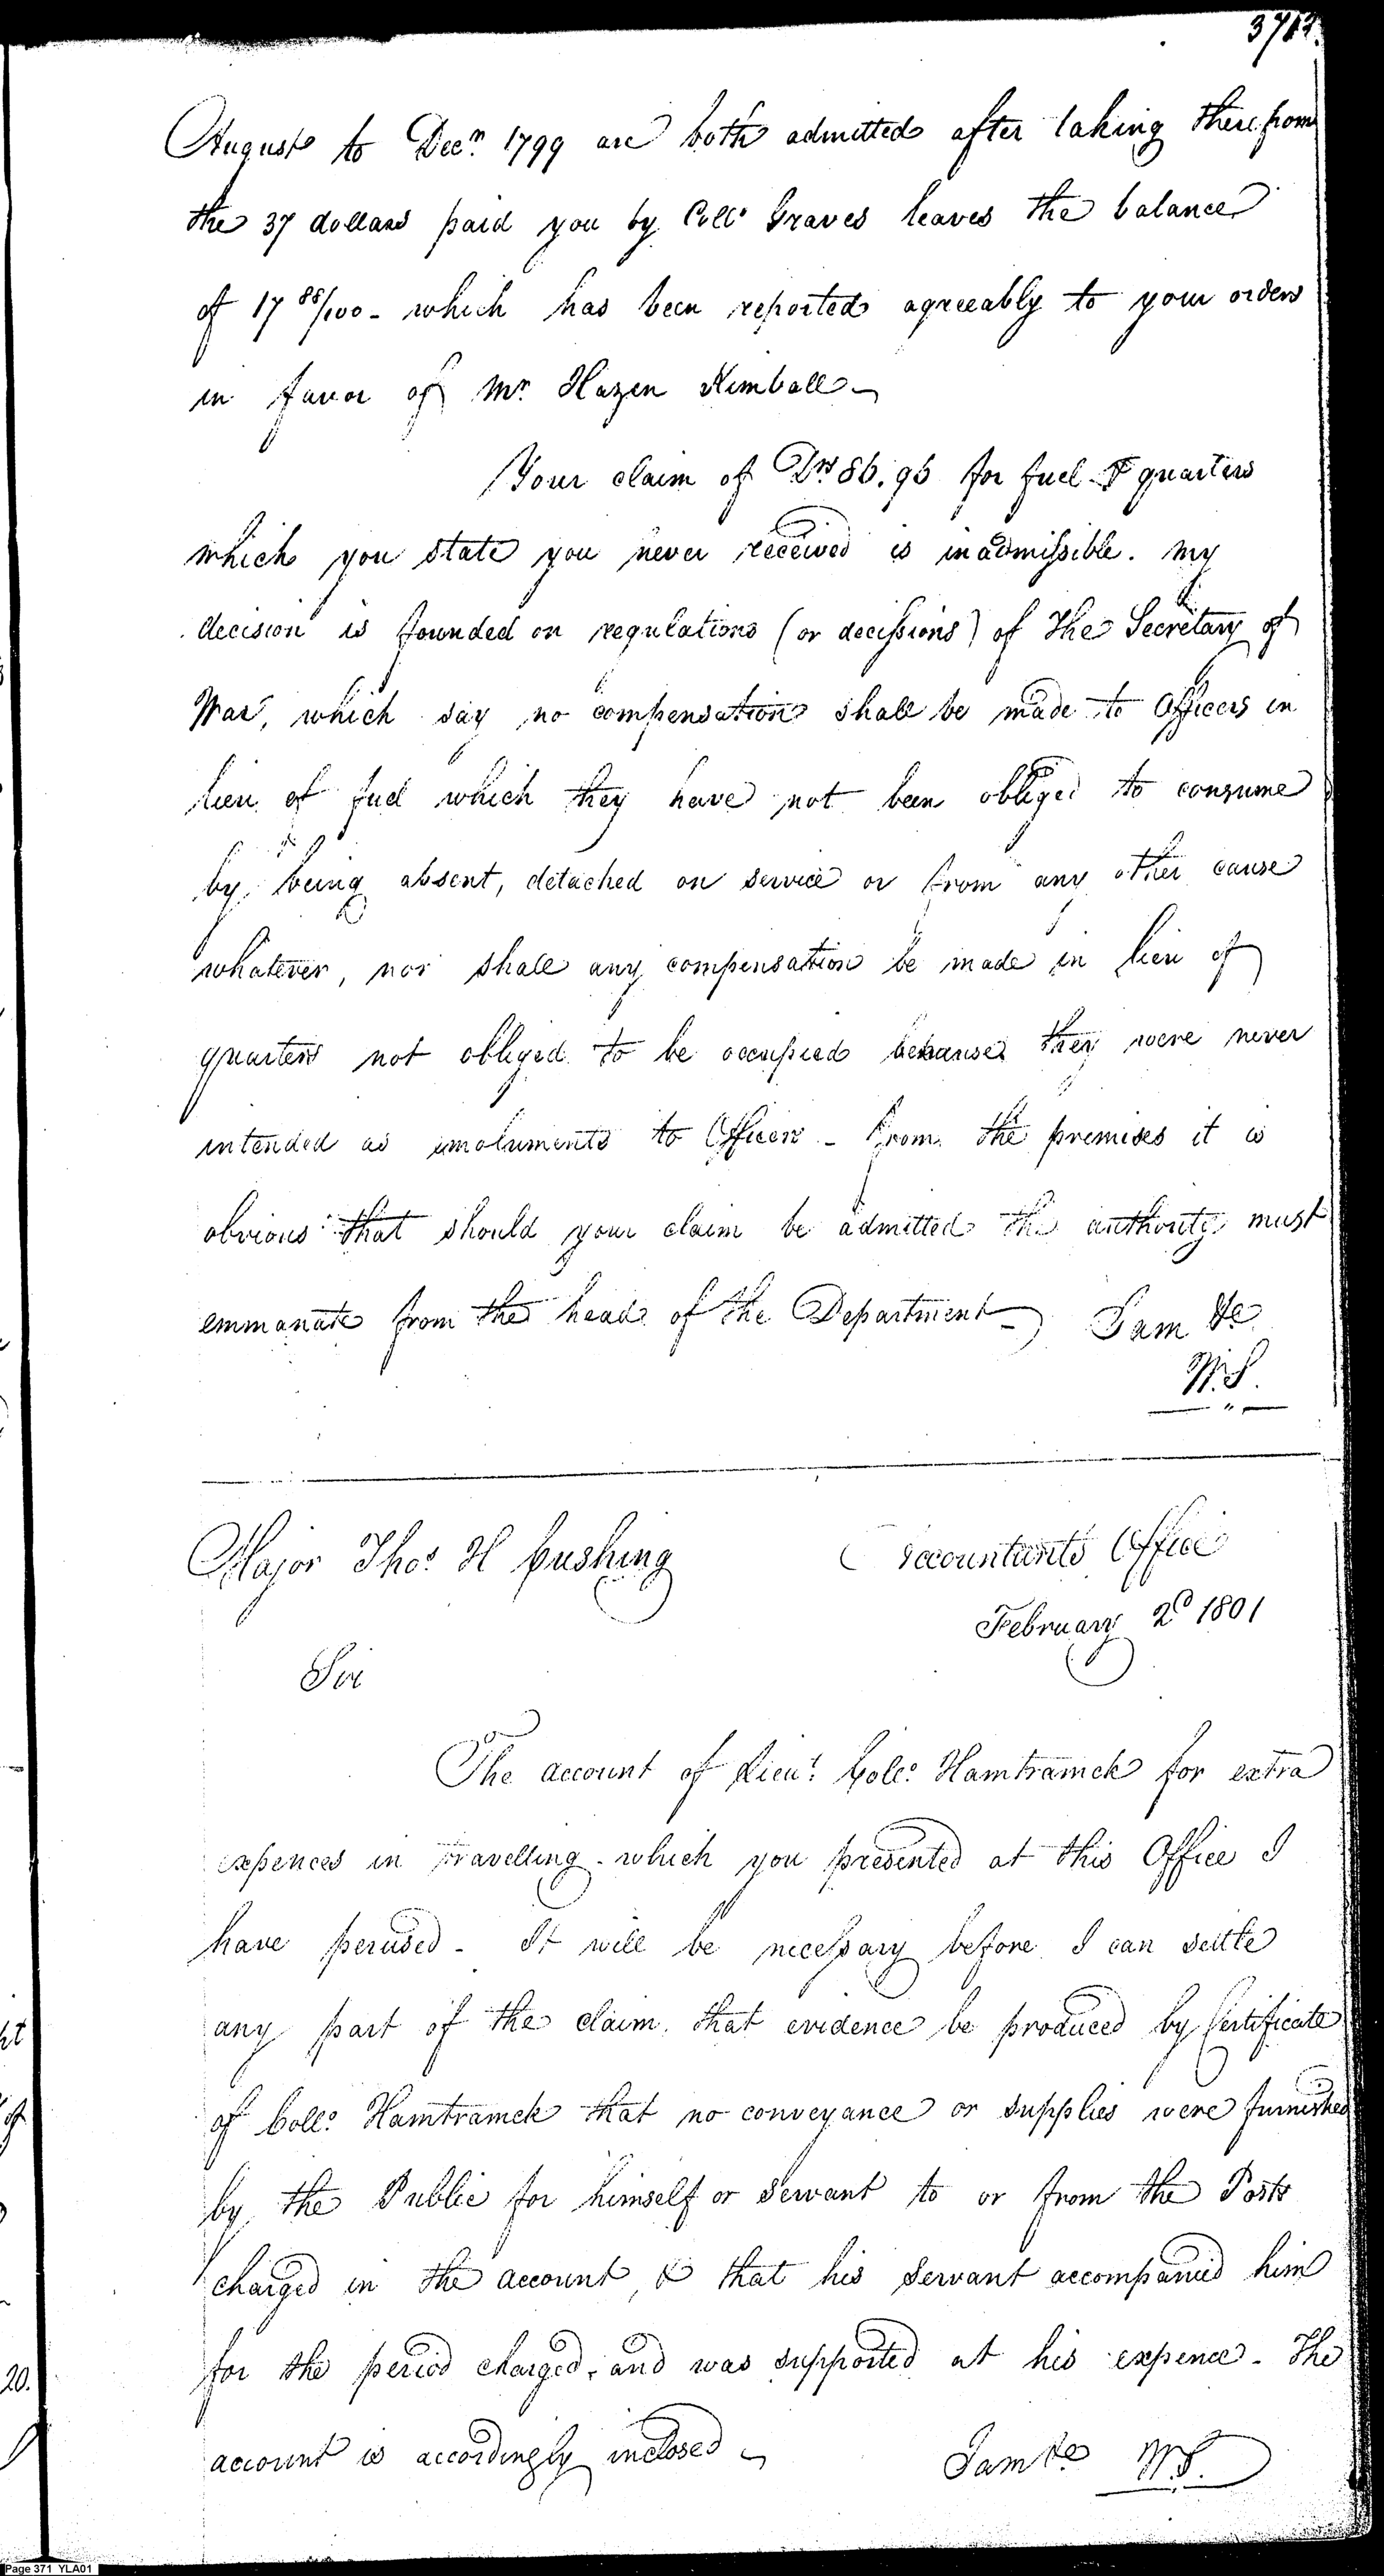 371
August to Decr. 1799 are both admitted after taking therefrom
the 37 dollars paid you by Collo. Graves leaves the balance
of 17 88/100 - which has been reported agreeably to your orders
in favor of Mr. Hazen Kimball -
Your claim of Drs 86.96 for fuel & quarters
which you state you never received is inadmissible. My
decision is founded on regulations (or decissions) of the Secretary of
War, which say no compensation shall be made to Officers in
lieu of fuel which they have not been obliged to consume
by being absent, detached on service or from any other cause
whatever, nor shall any compensation be made in lieu of
quarters not obliged to be occupied because they were never
intended as emoluments to Officers - From the premises it is
obvious that should your claim be admitted the authority must
emmanate from the head of the Department - I am &c
W.S.
Major Thos. H Cushing
Accountants Office
February 2d 1801
Sir
The account of Lieut. Colo. Hamtramck for extra
expences in travelling which you presented at this Office I
have perused - It will be necessary before I can settle
any part of the claim that evidence be produced by Certificate
of Collo. Hamtramck that no conveyance or supplies were furnished
by the Public for himself or Servant to or from the Posts
charged in the account, & that his Servant accompanied him
for the period charged, and was supported at his expence - The
account is accordingly inclosed -
I am &c W.S.
ht
of
20.
Page 371 YLA01